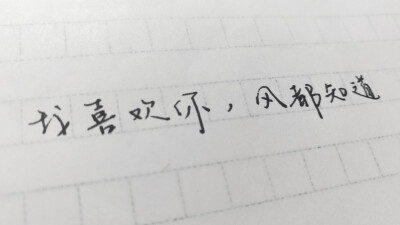 我喜欢你，风都知道